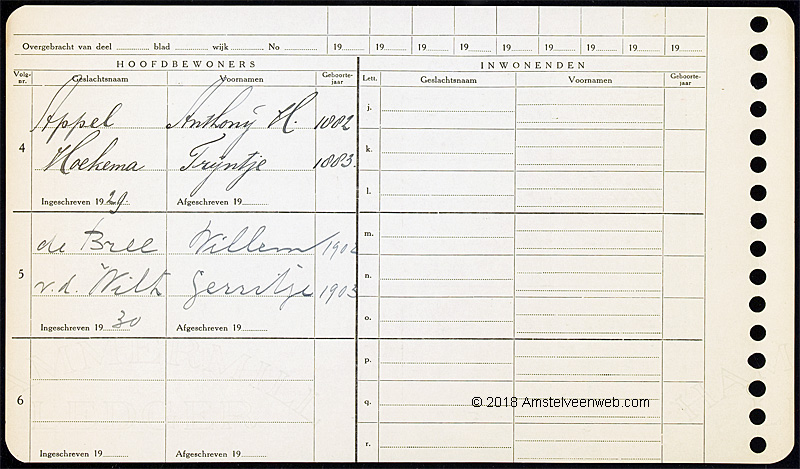 Overgebracht van deel blad wijk No 19 19 19 19 19 19 19 19 19
HOOFDBEWONERS INWONENDEN
Volgnr. Geslachtsnaam Voornamen Geboortejaar Lett. Geslachtsnaam Voornamen Geboortejaar
4 Appel Anthony H. 1882
Hoekema Trijntje 1883.
Ingeschreven 1929. Afgeschreven 19
j.
k.
l.
5 de Bree Willem 1902
v.d. Wilt Gerritje 1903
Ingeschreven 19 30 Afgeschreven 19
m.
n.
o.
6
Ingeschreven 19 Afgeschreven 19
p.
q.
r.
© 2018 Amstelveenweb.com